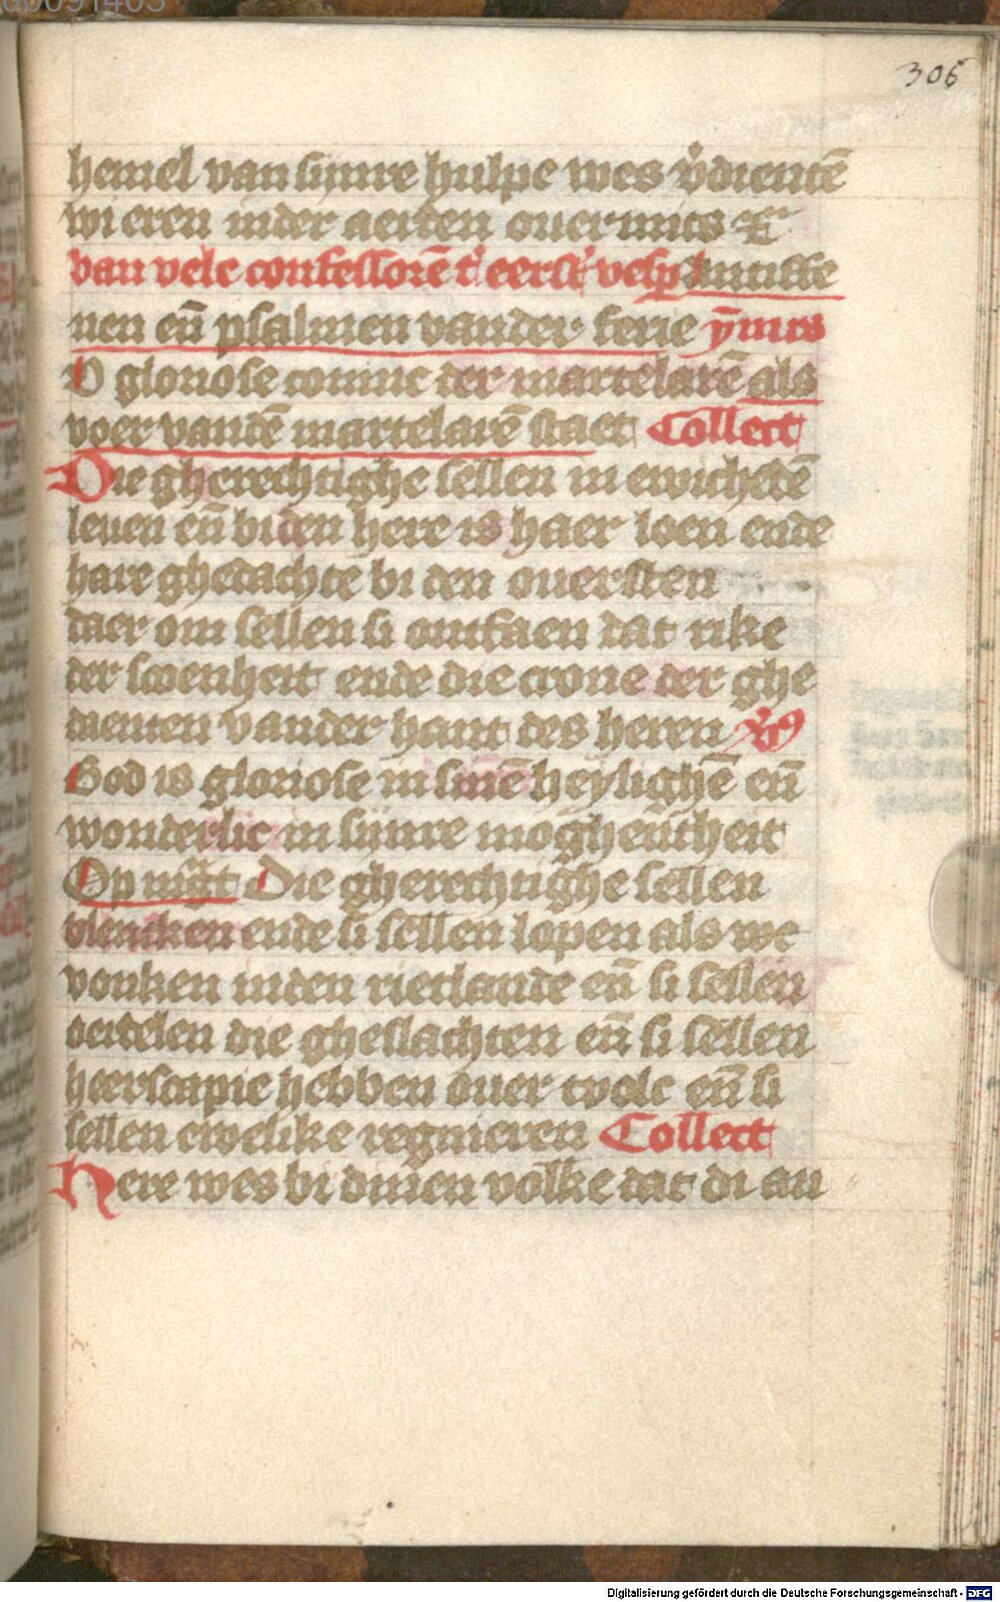 306
hemel van sijnre hulpe wes v̓dientē
wi eren inder aerden ouermits ~
van vele confessorē t' eerst' vesp Antiffe
nen en̄ psalmen vander ferie ȳmus
O gloriose coninc der martelarē als
voer vandē martelarē staet Collect
Die gherechtighe sellen in ewichedē
leuen en̄ bi den here is haer loen ende
hare ghedachte bi den ouersten
daer om sellen si ontfaen dat rike
der scoenheit ende die crone der ghe
daenten vander hant des heren
God is gloriose in sinē heylighē en̄
wonderlic in sijnre moghēth̄eit
Op mg̅t Die gherechtighe sellen
blencken ende si sellen lopen als we
vonken inden rietlande en̄ si sellen
oerdelen die gheslachten en̄ si sellen
heerscapie hebben ouer tvolc en̄ si
sellen ewelike regnieren Collect
Here wes bi dinen volke dat di an
Digitalisierung gefördert durch die Deutsche Forschungsgemeinschaft - DFG